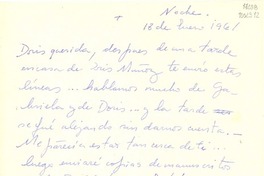 Noche.
+
18 de Enero 1961
Doris querida, despues de una tarde
en casa de Inés Muñoz te envío estas
líneas... hablamos mucho de Ga-
briela y de Doris... y la tarde
se fué alejando sin darnos cuenta.
Me parecía estar tan cerca de tí...
Luego enviaré copias de manuscritos